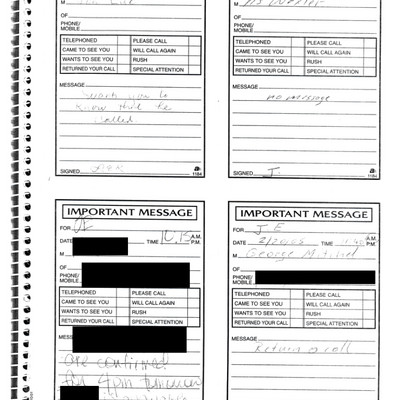 M
OF
PHONE/
MOBILE
TELEPHONED PLEASE CALL
CAME TO SEE YOU WILL CALL AGAIN
WANTS TO SEE YOU RUSH
RETURNED YOUR CALL SPECIAL ATTENTION
MESSAGE
know that he
called
SIGNED
1184
M
OF
PHONE/
MOBILE
TELEPHONED PLEASE CALL
CAME TO SEE YOU WILL CALL AGAIN
WANTS TO SEE YOU RUSH
RETURNED YOUR CALL SPECIAL ATTENTION
MESSAGE
no message
SIGNED J.
1184
IMPORTANT MESSAGE
FOR JE
DATE TIME A.M.
P.M.
M
OF
PHONE/
MOBILE
TELEPHONED PLEASE CALL
CAME TO SEE YOU WILL CALL AGAIN
WANTS TO SEE YOU RUSH
RETURNED YOUR CALL SPECIAL ATTENTION
MESS
are confirmed
for 4pm
IMPORTANT MESSAGE
FOR J.E
DATE TIME A.M.
P.M.
M George Mitchel
OF
PHONE/
MOBILE
TELEPHONED PLEASE CALL
CAME TO SEE YOU WILL CALL AGAIN
WANTS TO SEE YOU RUSH
RETURNED YOUR CALL SPECIAL ATTENTION
MESSAGE
Return a call